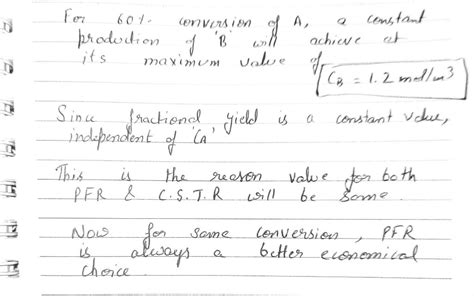 For 60% conversion of A, a constant
production of 'B' will achieve at
its maximum value of
CB = 1.2 mol/m3
Since fractional yield is a constant value,
independent of 'CA'
This is the reason value for both
PFR & C.S.T.R will be same.
Now for same conversion, PFR
is always a better economical
choice